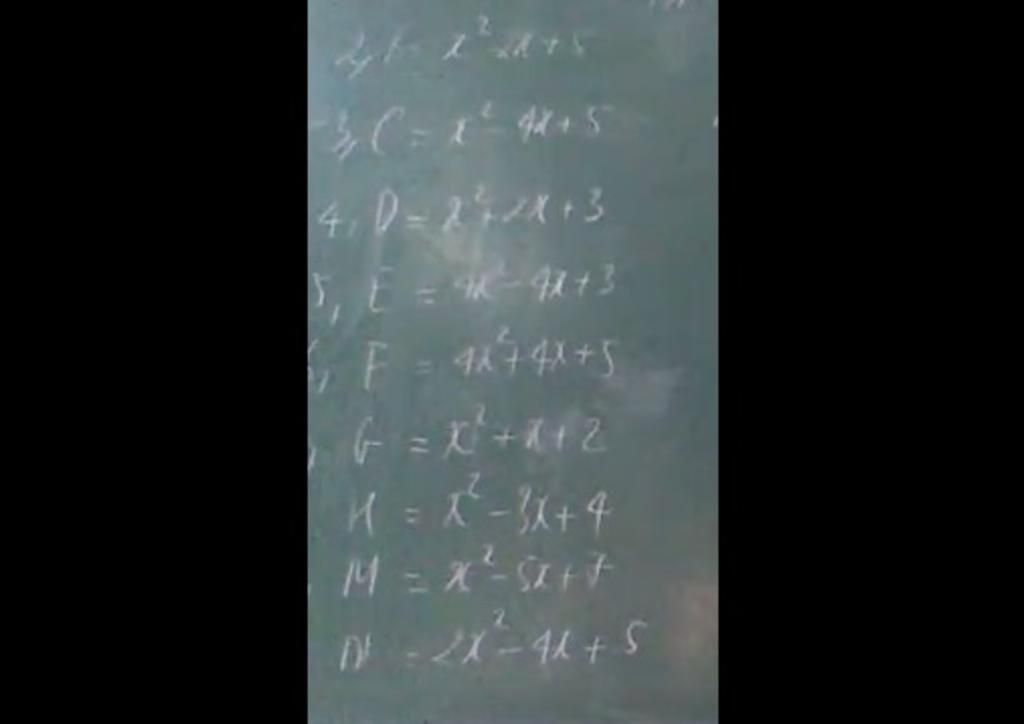 2, = x² - 2x + 5
3, C = x² - 4x + 5
4, D = x² + 2x + 3
5, E = 4x² - 4x + 3
F = 4x² + 4x + 5
G = x² + x + 2
H = x² - 3x + 4
M = x² - 5x + 7
N = 2x² - 4x + 5